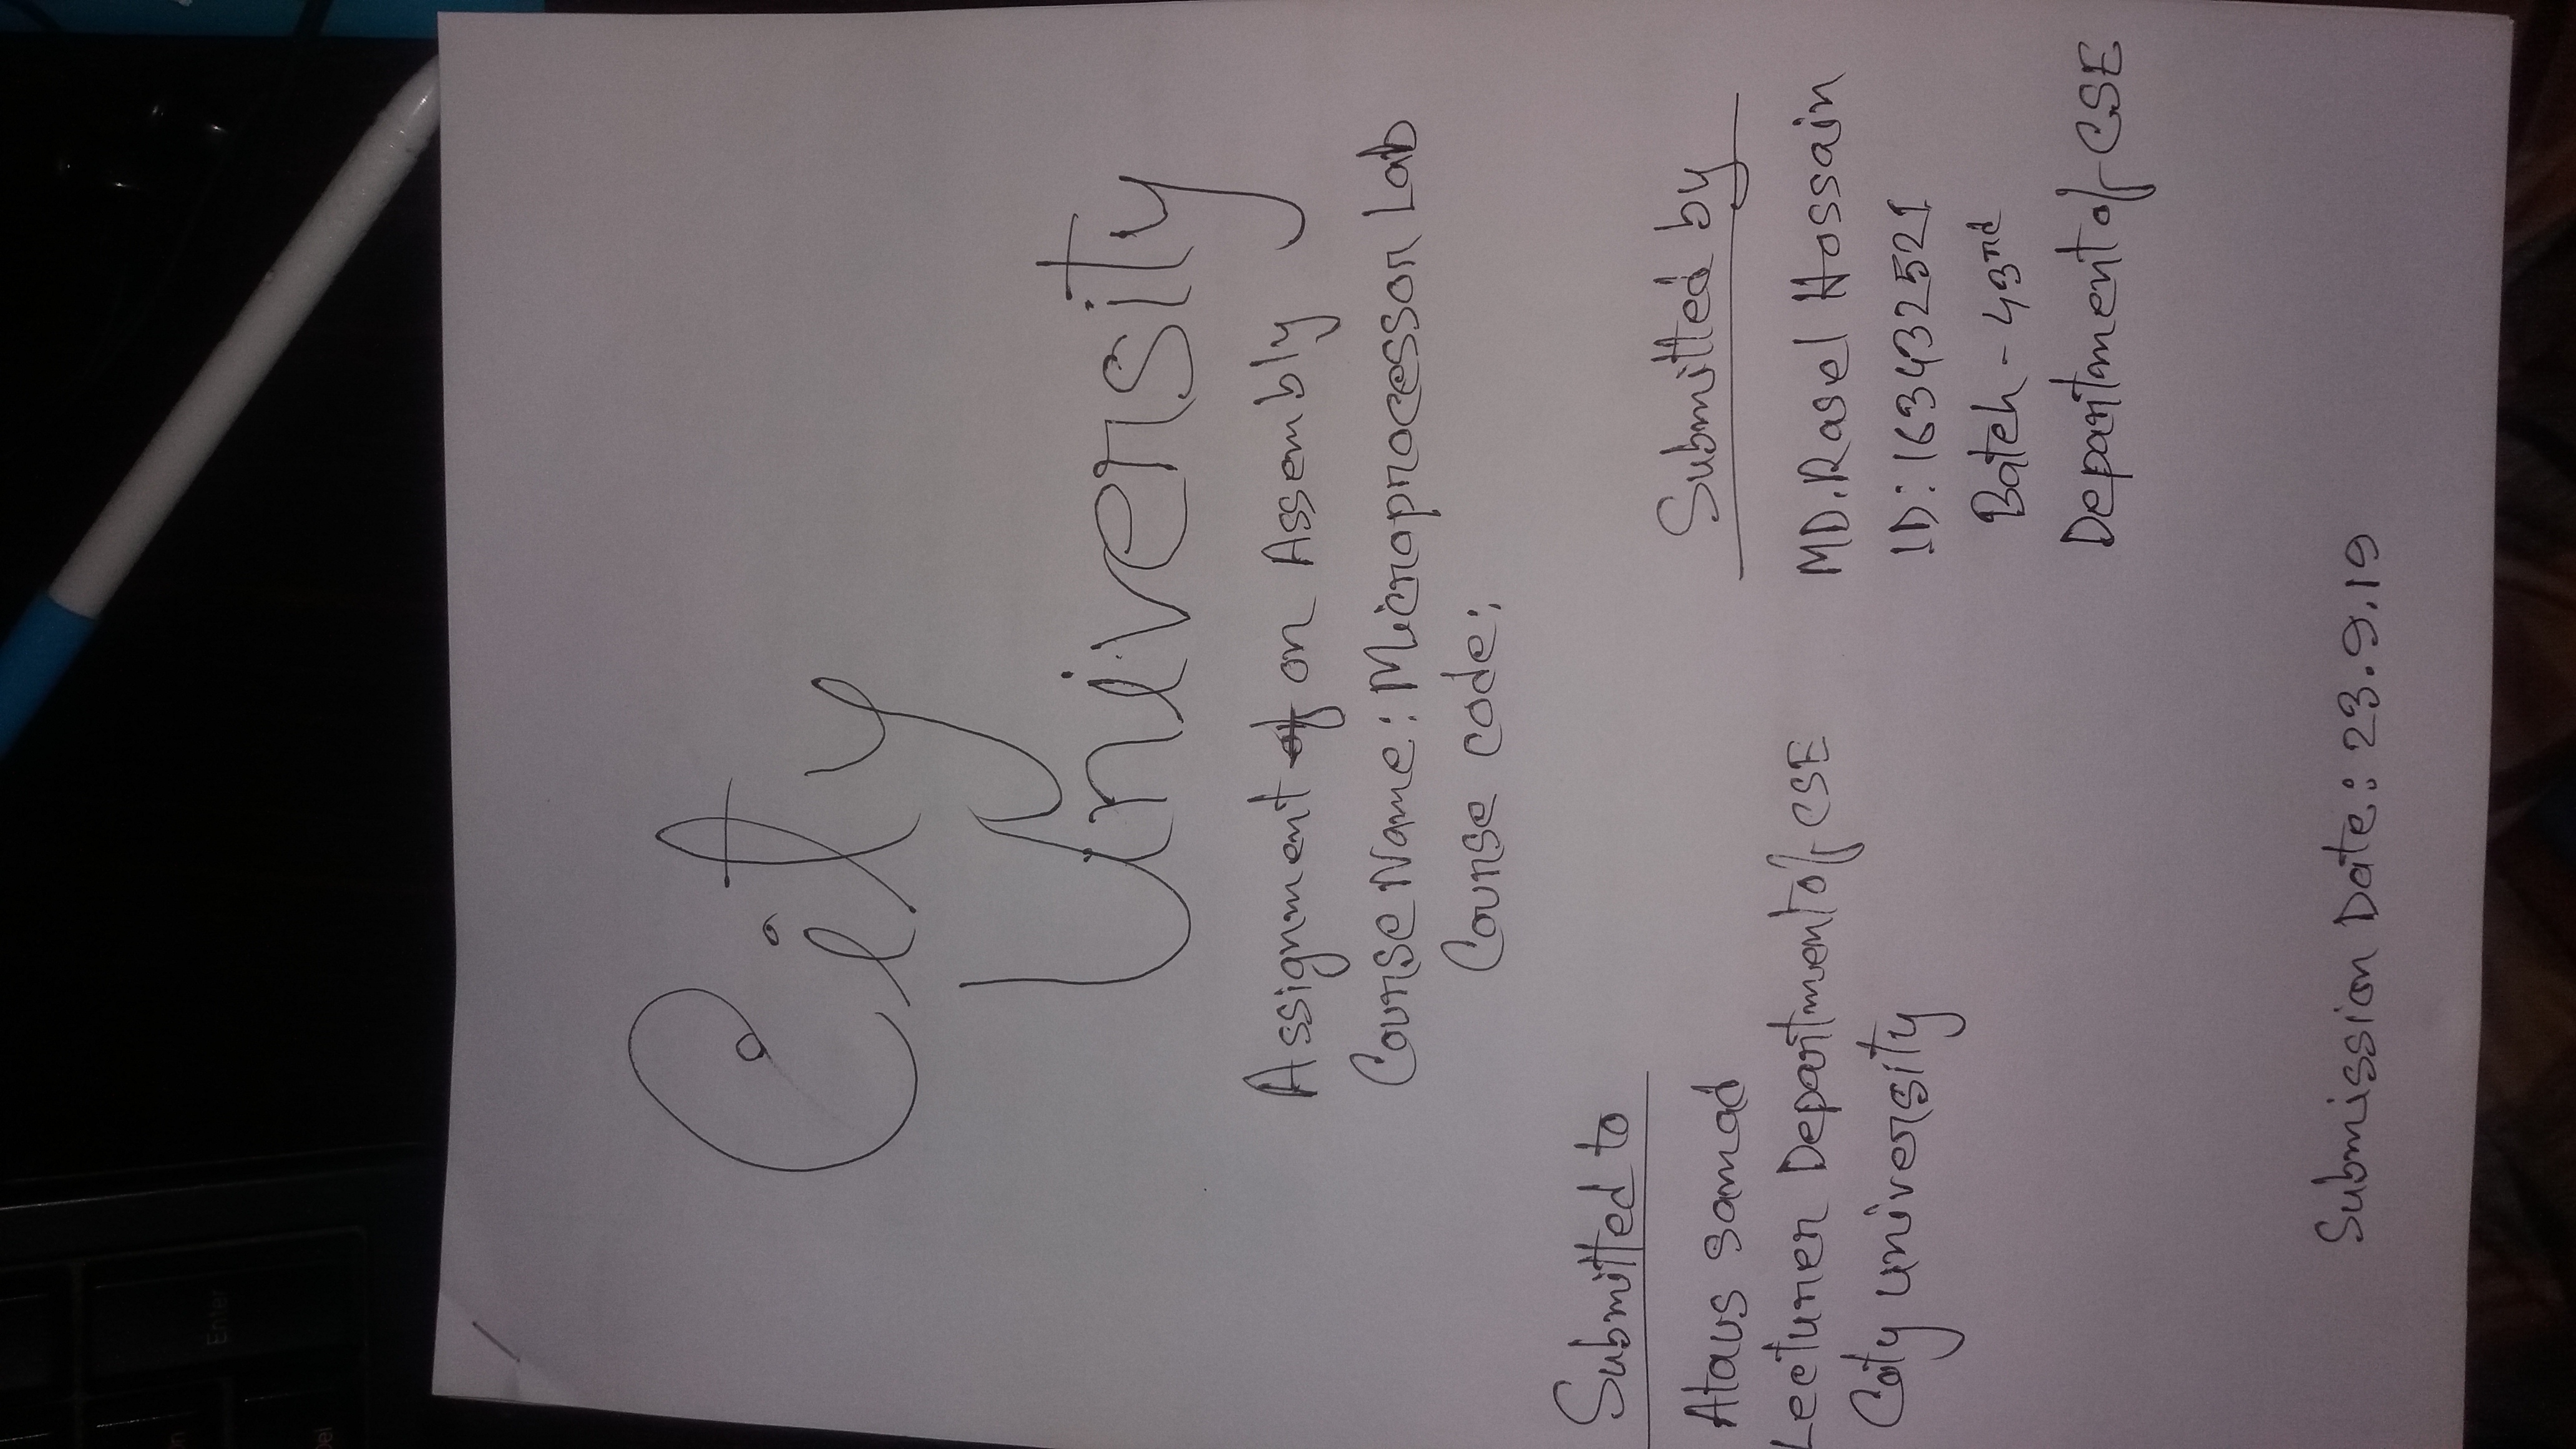 on
Enter
Del
City
University
Assignment of on Assembly
Course Name: Microprocessor Lab
Course code:
Submitted to
Ataus samad
Lecturer Department of CSE
City university
Submitted by
MD. Rasel Hossain
ID: 163432521
Batch - 43nd
Department of CSE
Submission Date: 23.9.19